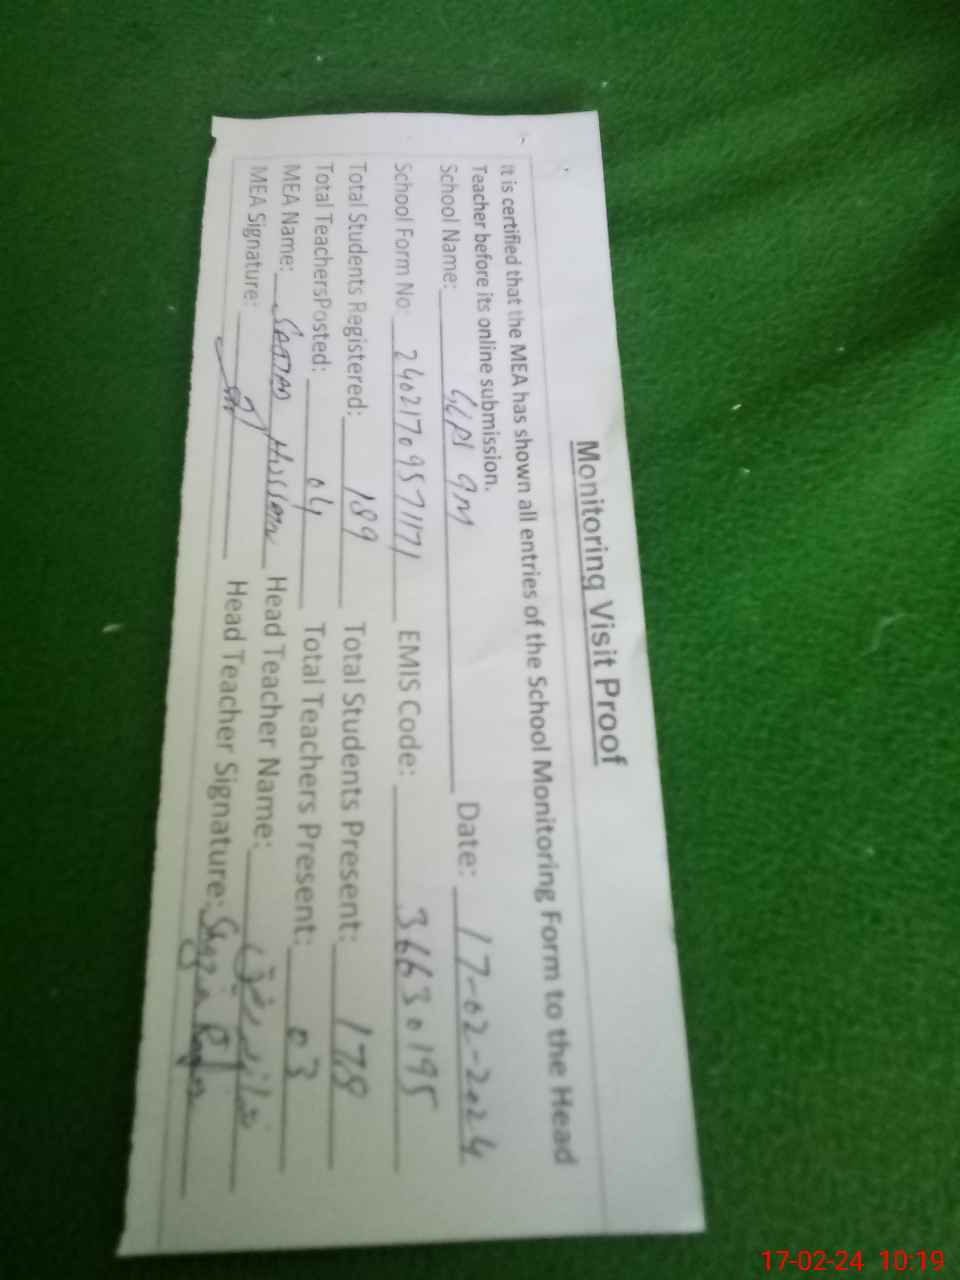 Monitoring Visit Proof
It is certified that the MEA has shown all entries of the School Monitoring Form to the Head
Teacher before its online submission.
School Name: 9M Date: 17-02-2024
School Form No: 24021709571171 EMIS Code: 36630195
Total Students Registered: 189 Total Students Present: 178
Total TeachersPosted: 04 Total Teachers Present: 03
MEA Name: Hussain Head Teacher Name:
MEA Signature: Head Teacher Signature:
17-02-24 10:19